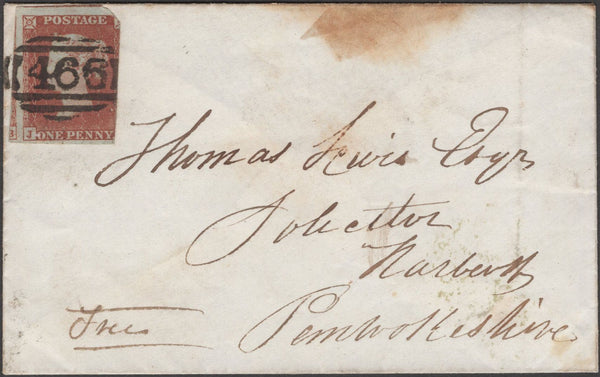 POSTAGE
466
J ONE PENNY
Thomas Lewis Esqr
Solicitor
Narberth
Free
Pembrokeshire